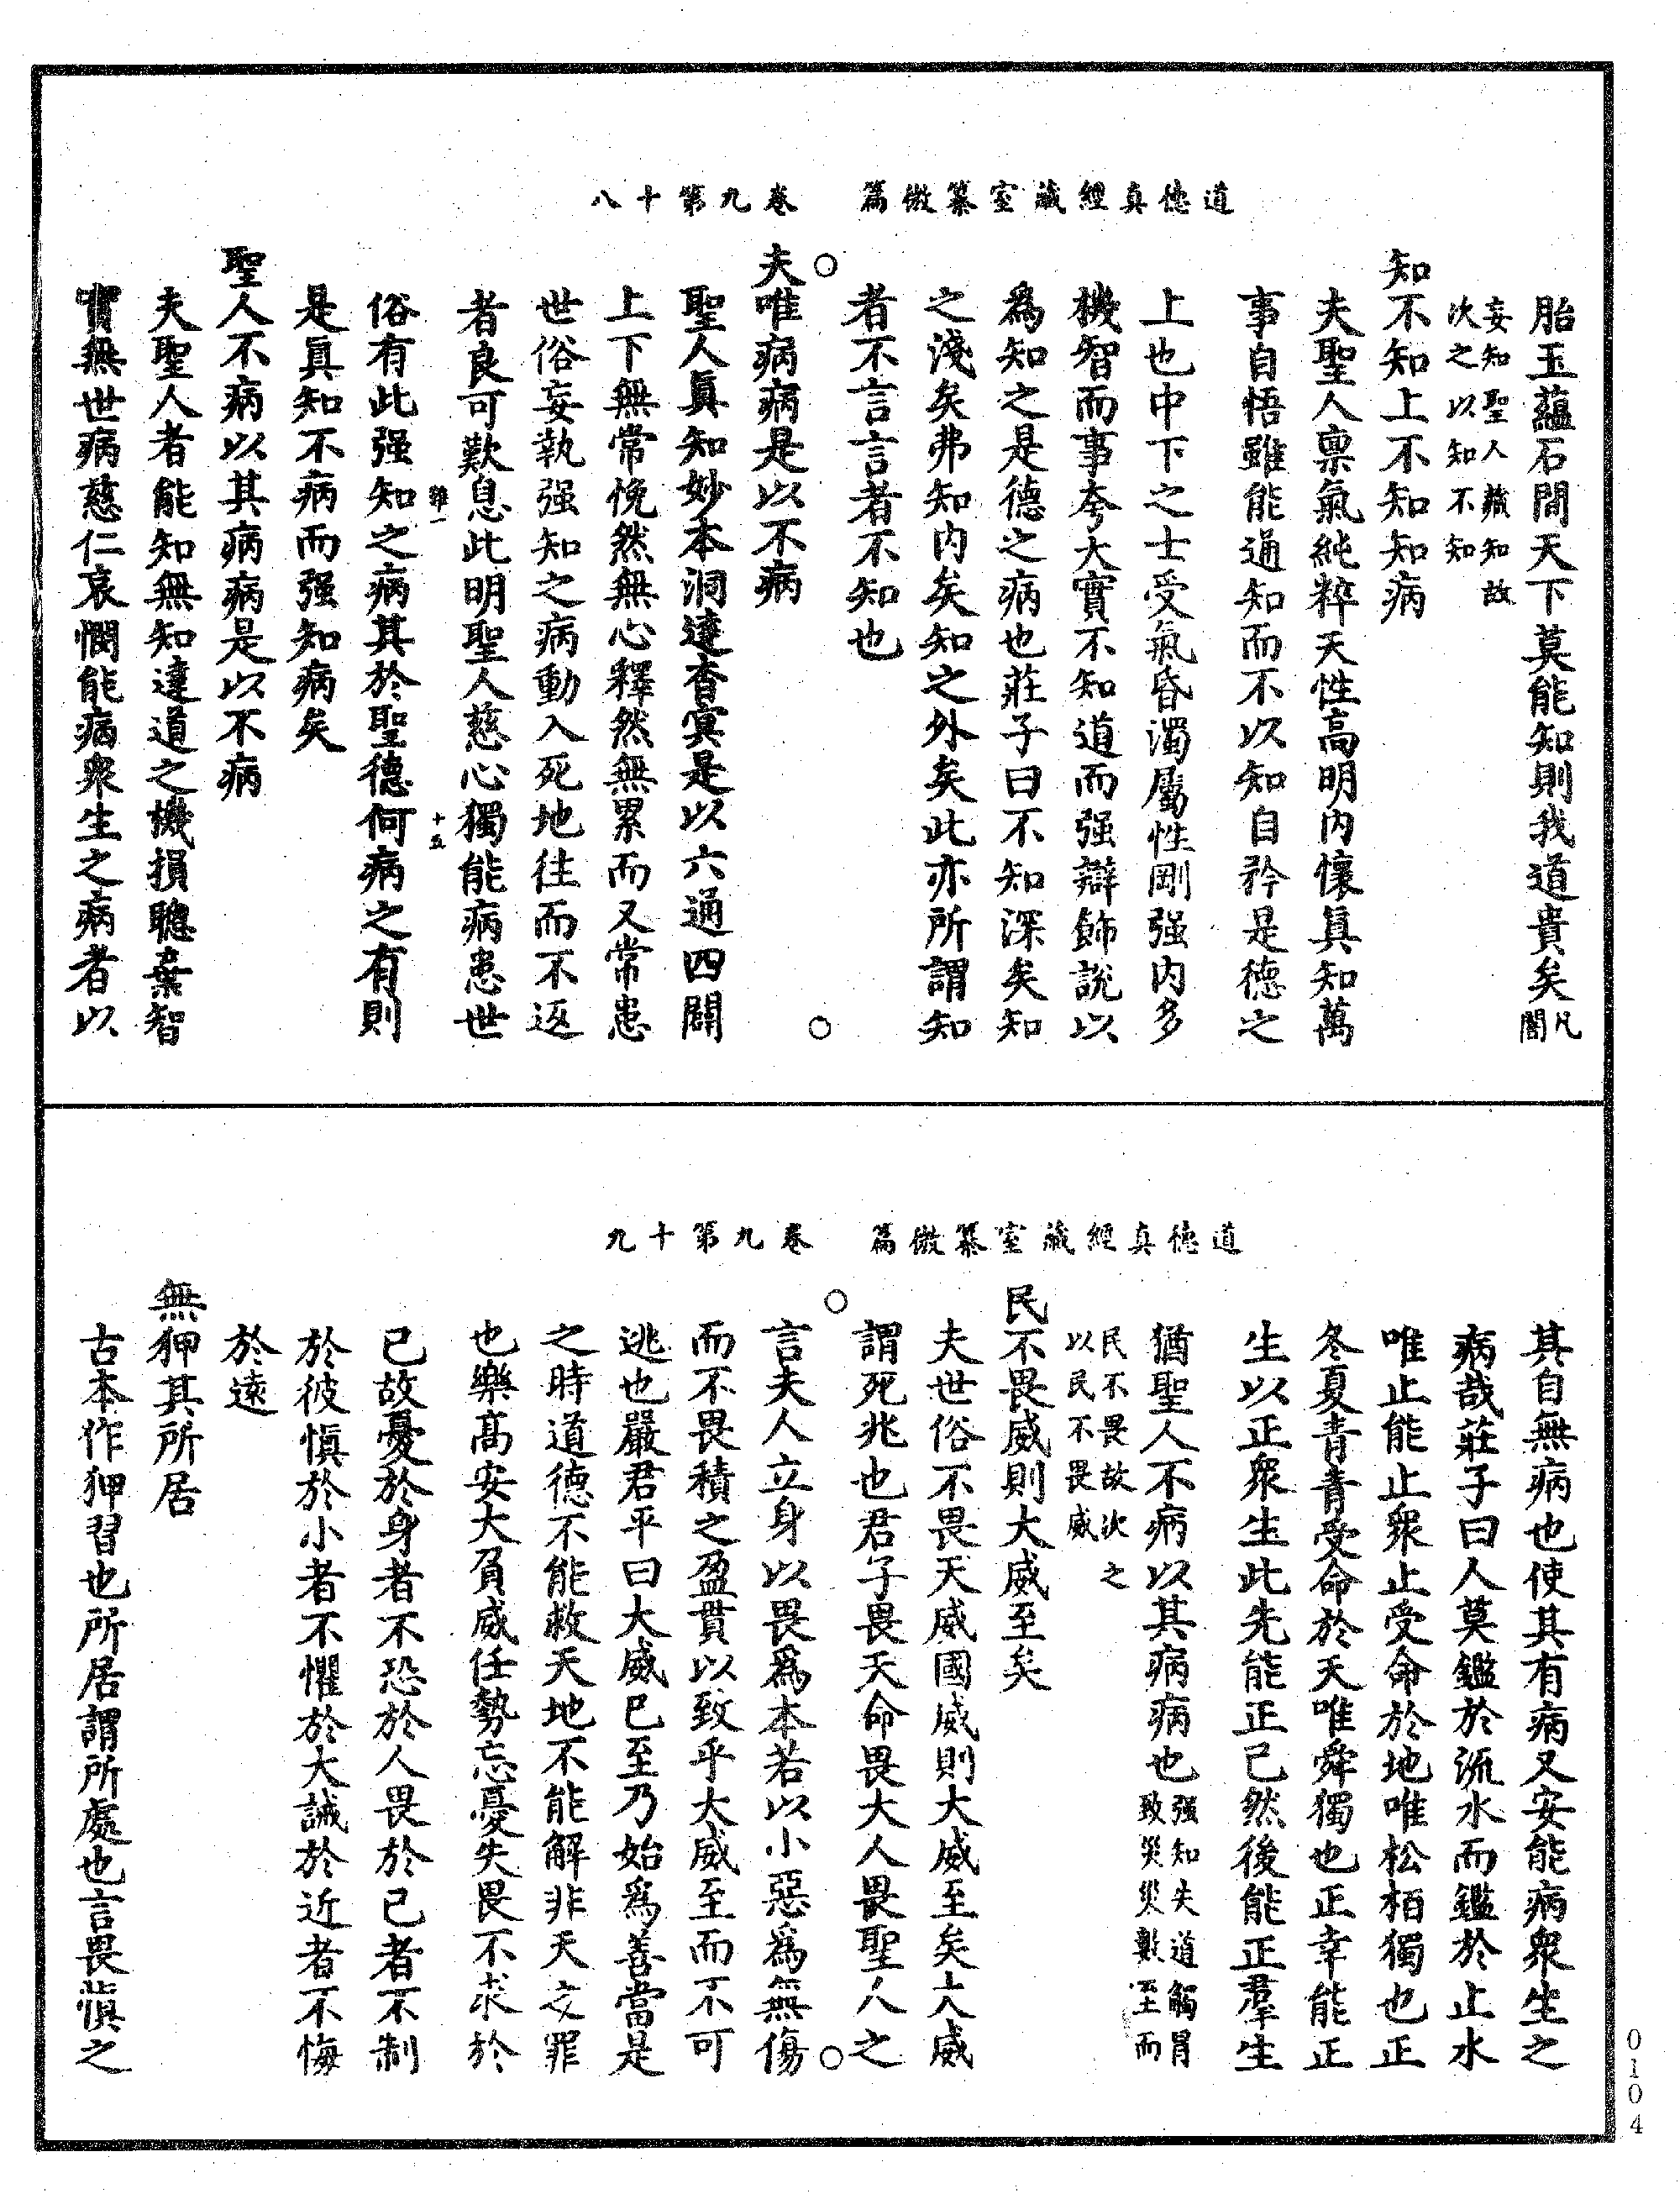 道德真經藏室纂微篇　卷九第十八
胎玉蘊石間天下莫能知則我道貴矣凡闇
妄知聖人藏知故
次之以知不知
知不知上不知知病
夫聖人稟氣純粹天性高明內懷真知萬
事自悟雖能通知而不以知自矜是德之
上也中下之士受氣昏濁屬性剛强內多
機智而事夸大實不知道而强辯飾說以
為知之是德之病也莊子曰不知深矣知
之淺矣弗知內矣知之外矣此亦所謂知
者不言言者不知也
夫唯病病是以不病
聖人真知妙本洞達杳冥是以六通四闢
上下無常悗然無心釋然無累而又常患
世俗妄執强知之病動入死地往而不返
者良可歎息此明聖人慈心獨能病患世
俗有此强知之病其於聖德何病之有則
難一　十五
是真知不病而强知病矣
聖人不病以其病病是以不病
夫聖人者能知無知達道之機損聰棄智
實無世病慈仁哀憫能病衆生之病者以
道德真經藏室纂微篇　卷九第十九
其自無病也使其有病又安能病衆生之
病哉莊子曰人莫鑑於流水而鑑於止水
唯止能止衆止受命於地唯松栢獨也正
冬夏青青受命於天唯舜獨也正幸能正
生以正衆生此先能正已然後能正羣生
猶聖人不病以其病病也强知失道觸冒
致災災數至而
民不畏故次之
以民不畏威
民不畏威則大威至矣
夫世俗不畏天威國威則大威至矣大威
謂死兆也君子畏天命畏大人畏聖人之
言夫人立身以畏為本若以小惡為無傷
而不畏積之盈貫以致乎大威至而不可
逃也嚴君平曰大威已至乃始為善當是
之時道德不能救天地不能解非天之罪
也樂高安大負威任勢忘憂失畏不求於
已故憂於身者不恐於人畏於已者不制
於彼慎於小者不懼於大誡於近者不悔
於遠
無狎其所居
古本作狎習也所居謂所處也言畏慎之
0104